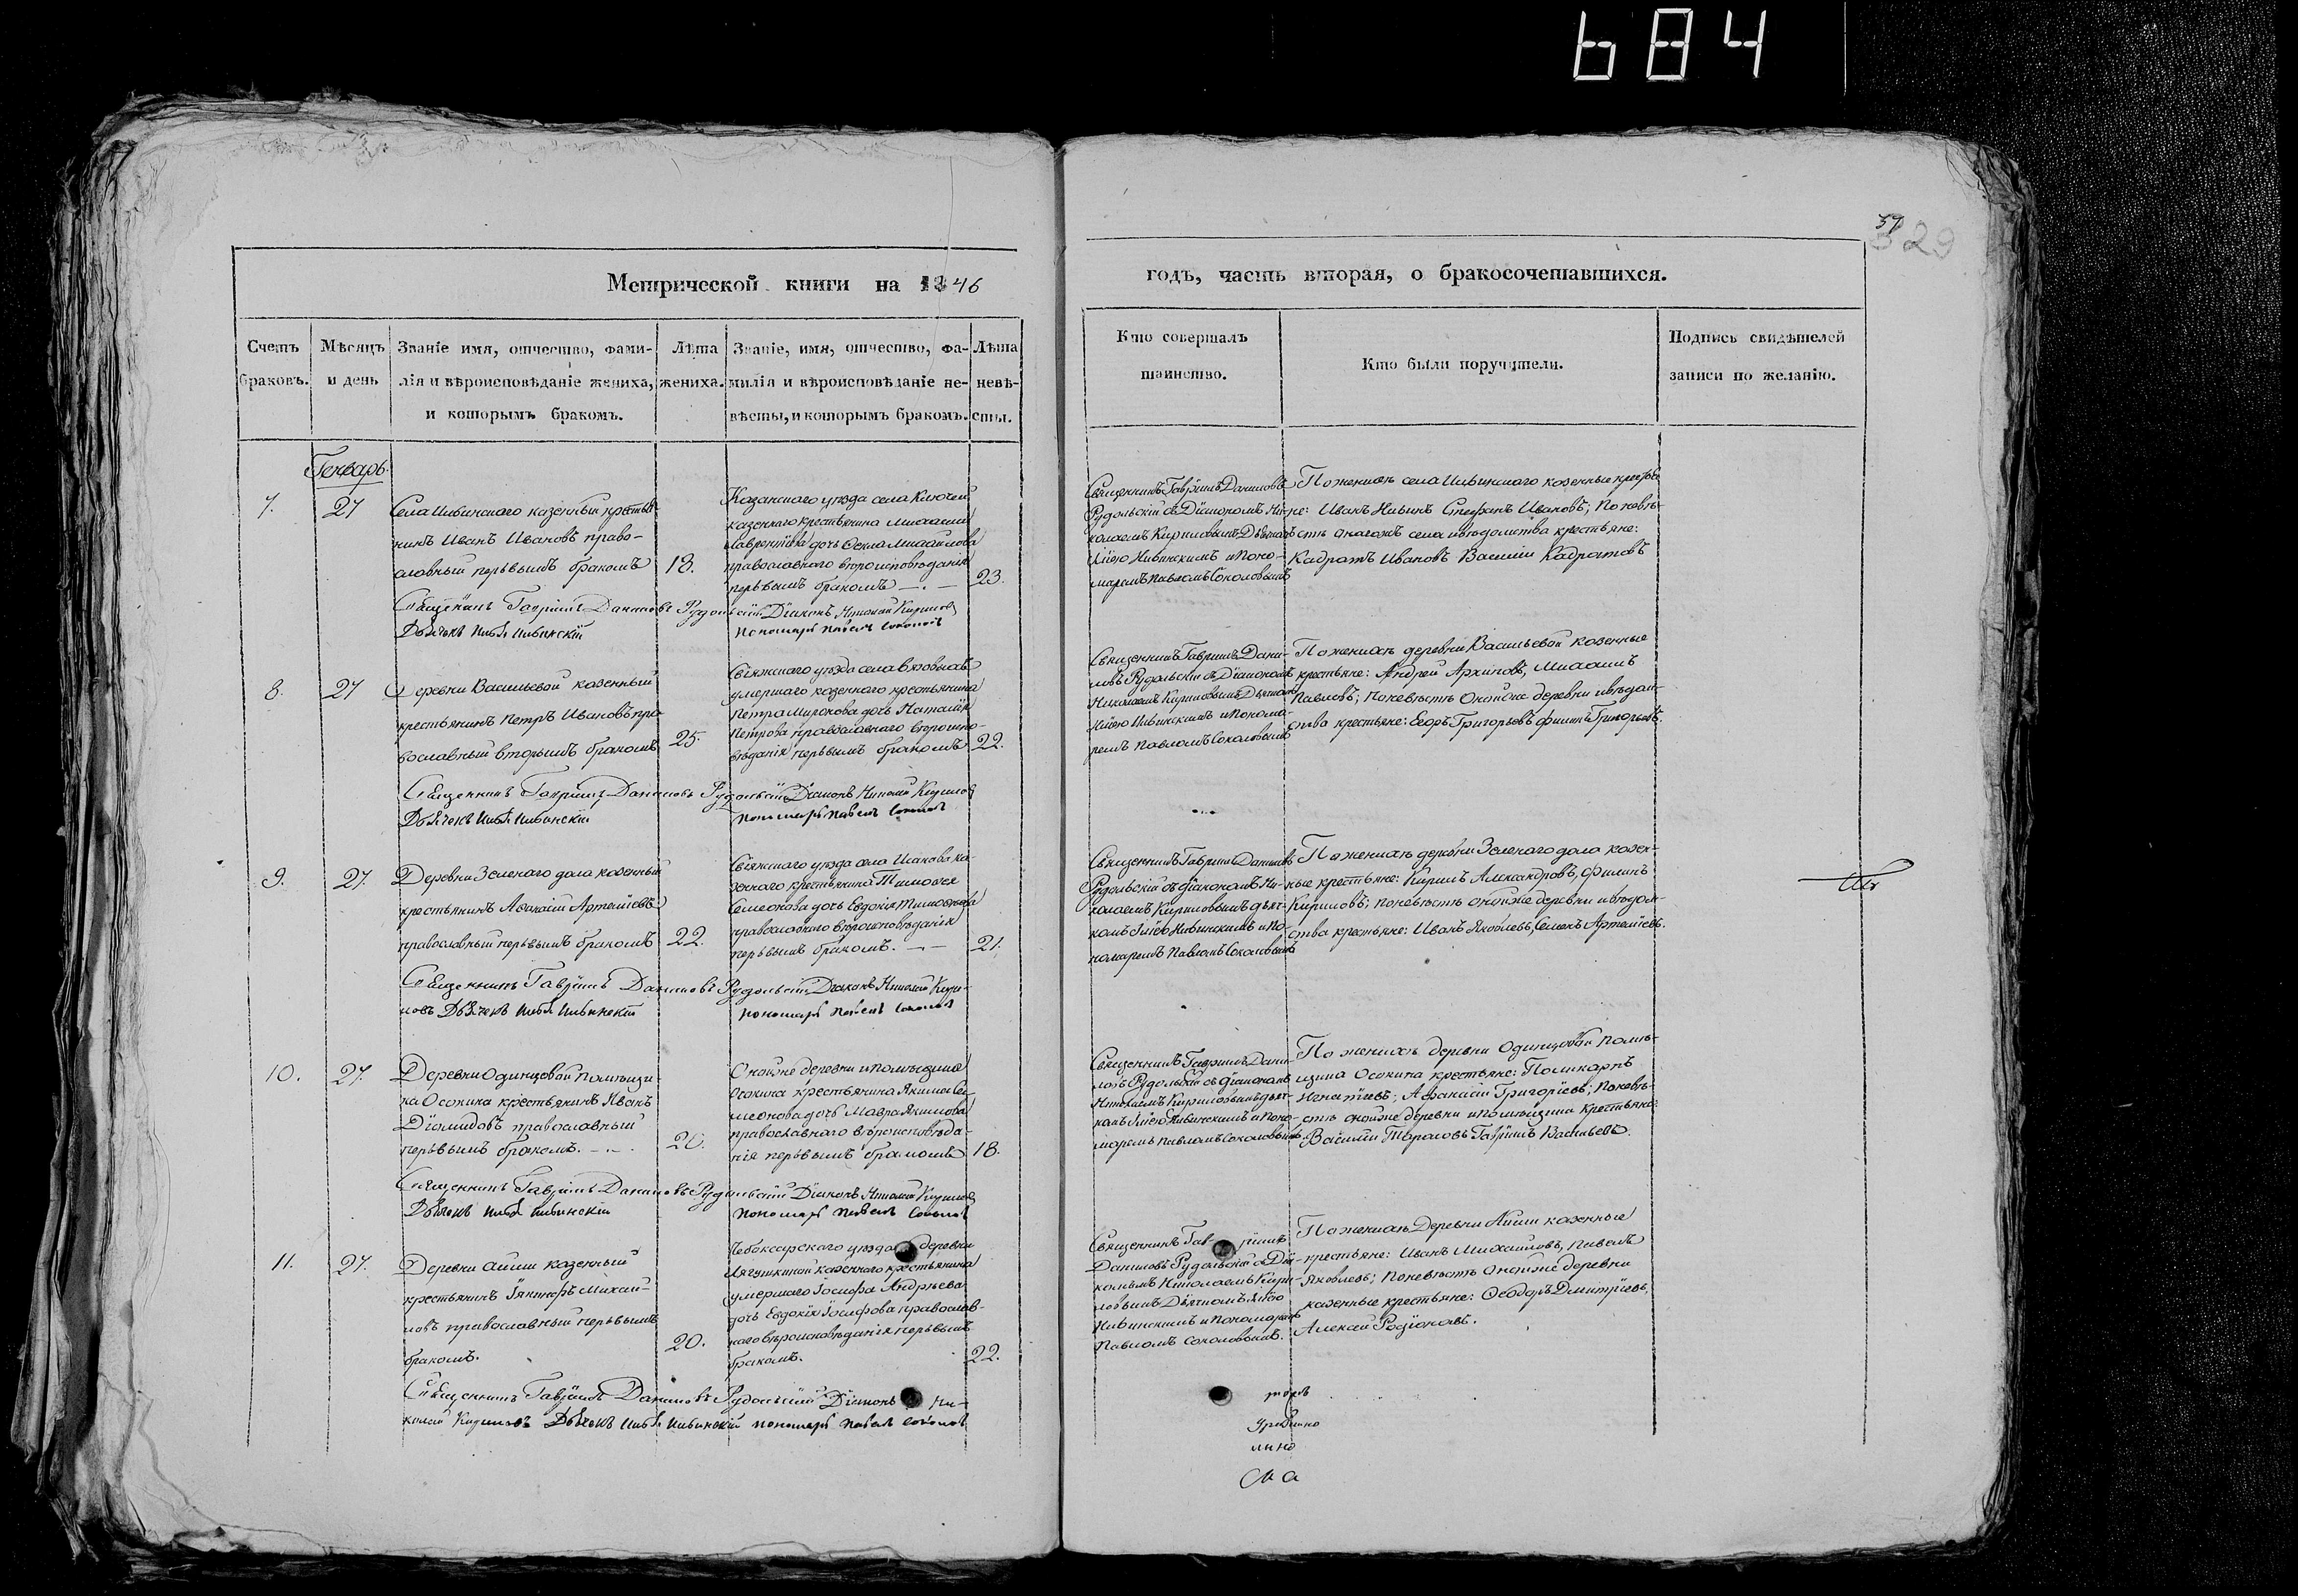 684
57
329
Метрической книги на 1846
годъ, часть вторая, о бракосочетавшихся.
Счетъ браковъ.
Мѣсяцъ и день
Званіе имя, отчество, фами-
лія и вѣроисповѣданіе жениха,
и которымъ бракомъ.
Лѣта
жениха.
Званіе, имя, отчество, фа-
милія и вѣроисповѣданіе не-
вѣсты, и которымъ бракомъ.
Лѣта
невѣ-
сты.
Кто совершалъ
таинство.
Кто были поручители.
Подпись свидѣтелей
записи по желанію.
Генварь
7.
27
Села Ивинскаго казенный крестья-
нинъ Иванъ Ивановъ право-
славный первымъ бракомъ
18.
Казанскаго уѣзда села Ключей
казеннаго крестьянина Михаила
Лаврентіева дочь Ѳекла Михайлова
православнаго вѣроисповѣданія
первымъ бракомъ
23.
Священникъ Гавріилъ Даниловъ
Рудольскій съ Діакономъ Ни-
колаемъ Кириловымъ Дьячкомъ
Иліею Ивинскимъ и Поно-
маремъ Павломъ Соколовымъ
По женихѣ села Ивинскаго казенные крестья-
не: Иванъ Ивановъ; По невѣ-
стѣ онагожъ села и вѣдомства крестьяне:
Кадратъ Ивановъ Василій Кадратовъ
Священникъ Гавріилъ Даниловъ Рудольскій Діаконъ Николай Кириловъ
Дьячекъ Илья Ивинскій Пономарь Павелъ Соколовъ
8.
27
Деревни Васильевой казенный
крестьянинъ Петръ Ивановъ пра-
вославный вторымъ бракомъ
25.
Свіяжскаго уѣзда села Вязовыхъ
умершаго казеннаго крестьянина
Петра Миронова дочь Наталія
Петрова православнаго вѣроиспо-
вѣданія первымъ бракомъ
22.
Священникъ Гавріилъ Дани-
ловъ Рудольскій съ Діакономъ
Николаемъ Кириловымъ Дьячкомъ
Иліею Ивинскимъ и Понома-
ремъ Павломъ Соколовымъ
По женихѣ деревни Васильевой казенные
крестьяне: Андрей Архиповъ, Михаилъ
Павловъ; По невѣстѣ Онойже деревни и вѣдом-
ства крестьяне: Егоръ Григорьевъ Филипъ Григорьевъ.
Священникъ Гавріилъ Даниловъ Рудольскій Діаконъ Николай Кириловъ
Дьячекъ Илья Ивинскій Пономарь Павелъ Соколовъ
9.
27.
Деревни Зеленаго дола казенный
крестьянинъ Аѳанасій Артеміевъ
православный первымъ бракомъ
22.
Свіяжскаго уѣзда села Исакова ка-
зеннаго крестьянина Тимоѳея
Семеонова дочь Евдокія Тимоѳеева
православнаго вѣроисповѣданія
первымъ бракомъ.
21.
Священникъ Гавріилъ Даниловъ
Рудольскій съ діакономъ Ни-
колаемъ Кириловымъ дьяч-
комъ Иліею Ивинскимъ и По-
номаремъ Павломъ Соколовымъ
По женихѣ деревни Зеленаго дола казен-
ные крестьяне: Кирилъ Александровъ, Филипъ
Кириловъ; по невѣстѣ онойже деревни и вѣдом-
ства крестьяне: Иванъ Яковлевъ, Семенъ Артеміевъ.
Священникъ Гавріилъ Даниловъ Рудольскій Діаконъ Николай Кири-
ловъ Дьячекъ Илья Ивинскій Пономарь Павелъ Соколовъ
10.
27.
Деревни Одинцовой помѣщи-
ка Осокина крестьянинъ Иванъ
Діомидовъ православный
первымъ бракомъ.
20.
Онойже деревни и помѣщика
Осокина крестьянина Якима Се-
меонова дочь Мавра Якимова
православнаго вѣроисповѣда-
нія первымъ бракомъ
18.
Священникъ Гавріилъ Дани-
ловъ Рудольскій съ діакономъ
Николаемъ Кириловымъ дьяч-
комъ Иліею Ивинскимъ и Поно-
маремъ Павломъ Соколовымъ
По женихѣ деревни Одинцовой помѣ-
щика Осокина крестьяне: Поликарпъ
Игнатіевъ, Аѳанасій Григоріевъ; По невѣ-
стѣ онойже деревни и помѣщика крестьяне:
Василій Тарасовъ Гавріилъ Васильевъ.
Священникъ Гавріилъ Даниловъ Рудольскій Діаконъ Николай Кириловъ
Дьячекъ Илья Ивинскій Пономарь Павелъ Соколовъ
11.
27.
Деревни Айши казенный
крестьянинъ Іакинфъ Михай-
ловъ православный первымъ
бракомъ.
20.
Чебоксарскаго уѣзда деревни
Лягушкиной казеннаго крестьянина
умершаго Іосифа Андреева
дочь Евдокія Іосифова православ-
наго вѣроисповѣданія первымъ
бракомъ.
22.
Священникъ Гавріилъ
Даниловъ Рудольскій съ Діа-
кономъ Николаемъ Кири-
ловымъ Дьячкомъ Иліею
Ивинскимъ и Пономаремъ
Павломъ Соколовымъ.
По женихѣ Деревни Айши казенные
крестьяне: Иванъ Михайловъ, Павелъ
Яковлевъ; По невѣстѣ Онойже деревни
казенные крестьяне: Ѳеодоръ Дмитріевъ,
Алексей Родіоновъ.
Священникъ Гавріилъ Даниловъ Рудольскій Діаконъ Ни-
колай Кириловъ Дьячекъ Илья Ивинскій Пономарь Павелъ Соколовъ